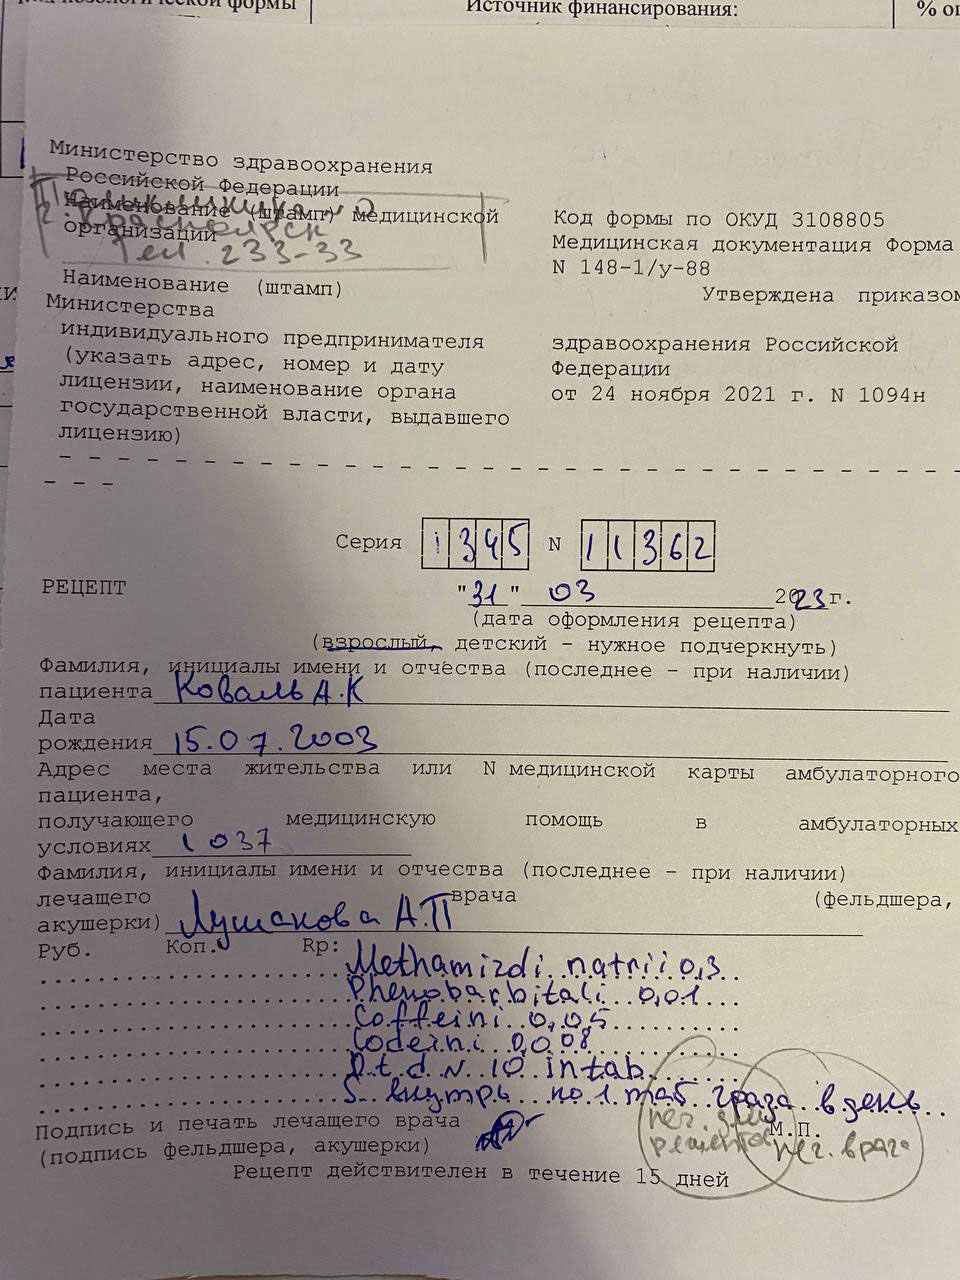 нозологической формы
Источник финансирования:
% оп
Министерство здравоохранения
Российской Федерации
Наименование (штамп) медицинской
организации
г. Красноярск
Тел. 233-33
Код формы по ОКУД 3108805
Медицинская документация Форма
N 148-1/у-88
Утверждена приказом
Наименование (штамп)
Министерства
индивидуального предпринимателя
(указать адрес, номер и дату
лицензии, наименование органа
государственной власти, выдавшего
лицензию)
здравоохранения Российской
Федерации
от 24 ноября 2021 г. N 1094н
Серия 1345 N 11362
РЕЦЕПТ "31" 03 2023 г.
(дата оформления рецепта)
(взрослый, детский - нужное подчеркнуть)
Фамилия, инициалы имени и отчества (последнее - при наличии)
пациента Коваль А.К
Дата
рождения 15.07.2003
Адрес места жительства или N медицинской карты амбулаторного
пациента,
получающего медицинскую помощь в амбулаторных
условиях 1037
Фамилия, инициалы имени и отчества (последнее - при наличии)
лечащего врача (фельдшера,
акушерки) Лушакова А.П
Руб. Коп. Rp: Methamizoli natrii 0,3
Phenobarbitali 0,01
Coffeini 0,05
Codeini 0,008
D.t.d. N 10 in tab.
S. внутрь по 1 таб 2 раза в день
Подпись и печать лечащего врача
(подпись фельдшера, акушерки)
М.П.
печ. для
рецептов
печ. врача
Рецепт действителен в течение 15 дней